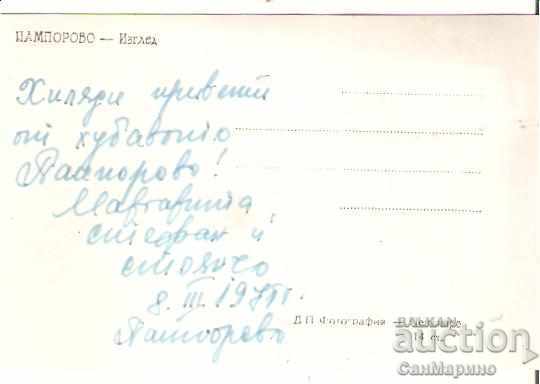 ПАМПОРОВО — Изглед
Хиляди привети
от хубавото
Пампорово!
Маргарита
Стефан и
Стоянчо
8. III. 1971 г.
Пампорово
ДП Фотография —
14 ст.
BALKAN
auction
СанМарино